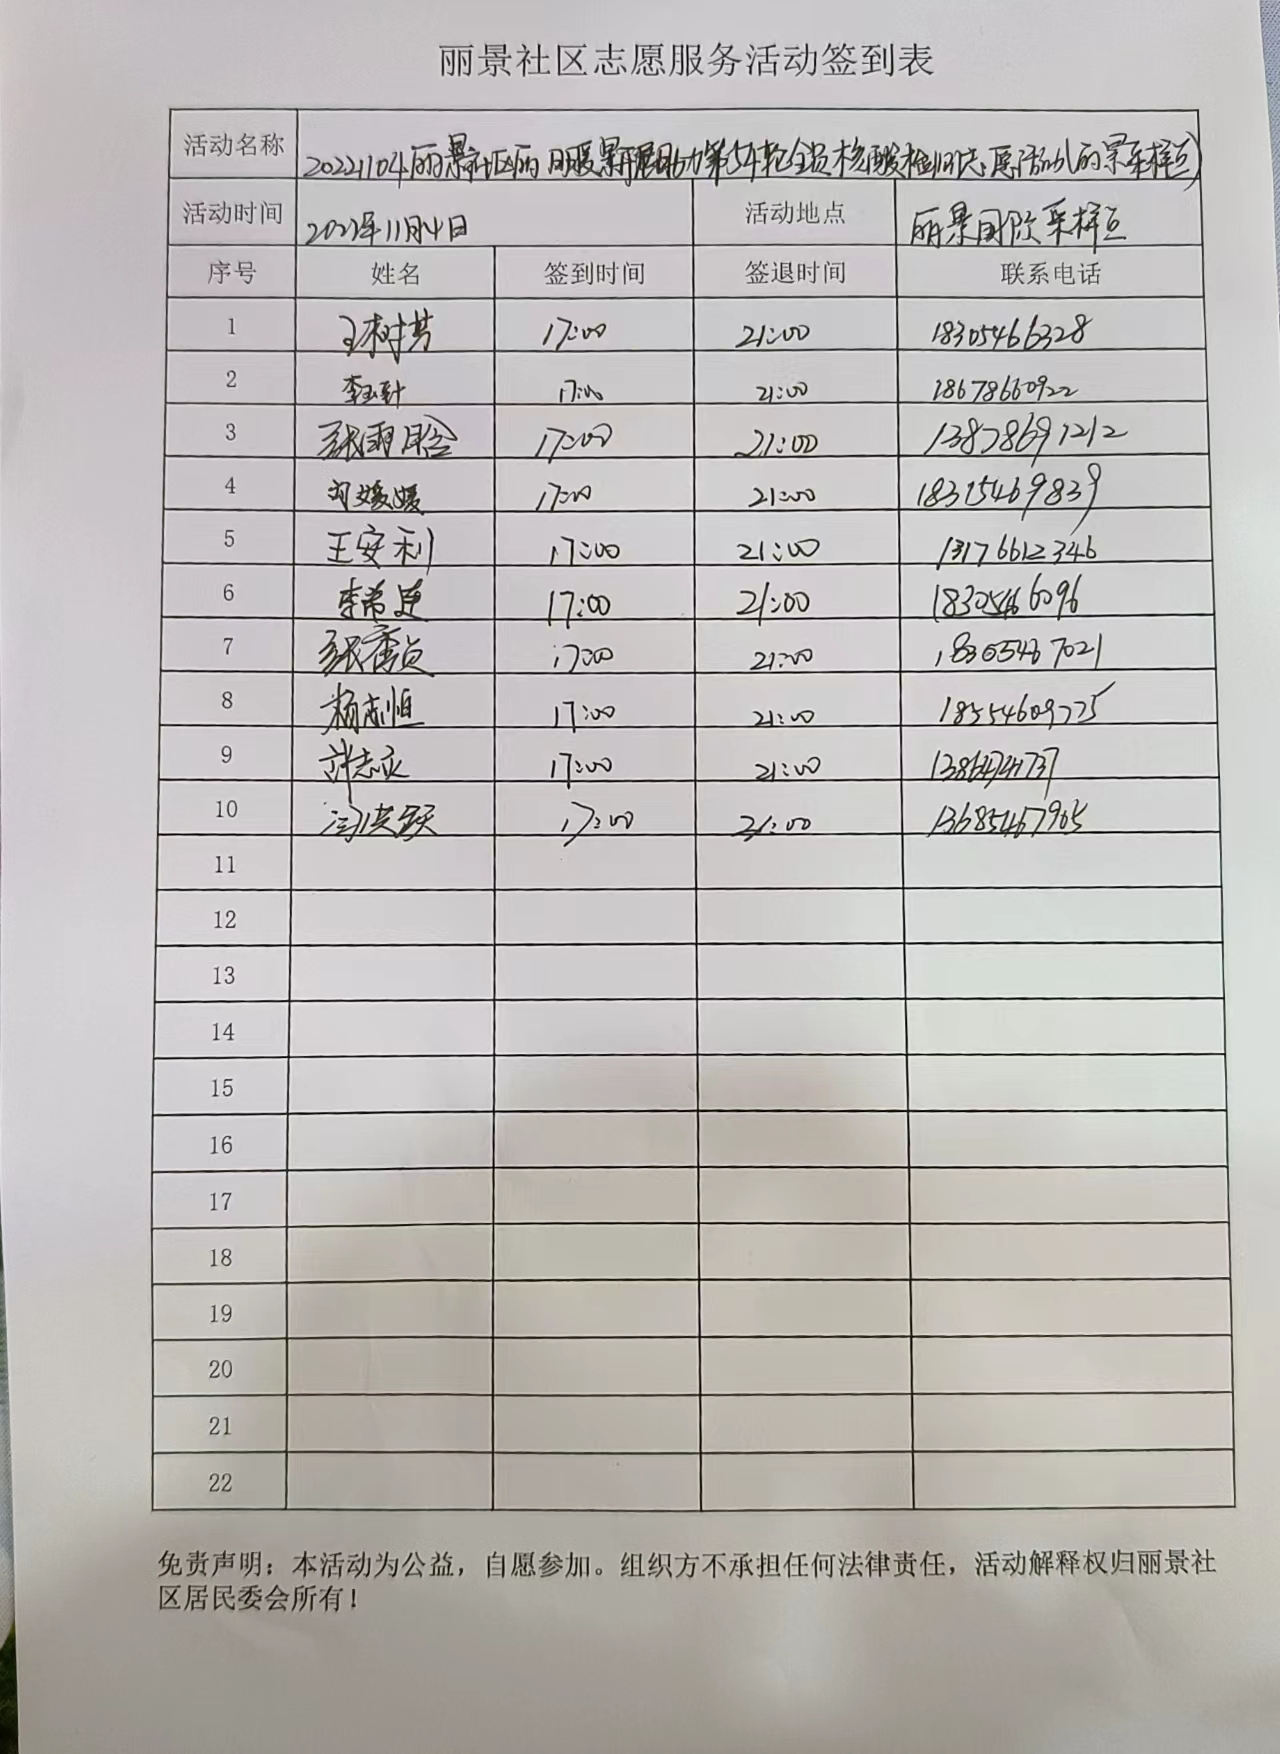 丽景社区志愿服务活动签到表
活动名称 20221104丽景社区丽 暖景开展助力第54轮全员核酸检测志愿活动(丽景采样点)
活动时间 2022年11月4日 活动地点 丽景国际采样点
序号 姓名 签到时间 签退时间 联系电话
1 王树芳 17:00 21:00 18305466328
2 李玉针 17:00 21:00 18678660922
3 张雨晗 17:00 21:00 13878691212
4 刘媛媛 17:00 21:00 18315469839
5 王安利 17:00 21:00 13176612346
6 李希莲 17:00 21:00 18305466096
7 张秀贞 17:00 21:00 18305467021
8 杨志恒 17:00 21:00 18554609725
9 17:00 21:00
10 17:00 21:00 13685467965
11
12
13
14
15
16
17
18
19
20
21
22
免责声明：本活动为公益，自愿参加。组织方不承担任何法律责任，活动解释权归丽景社
区居民委会所有！